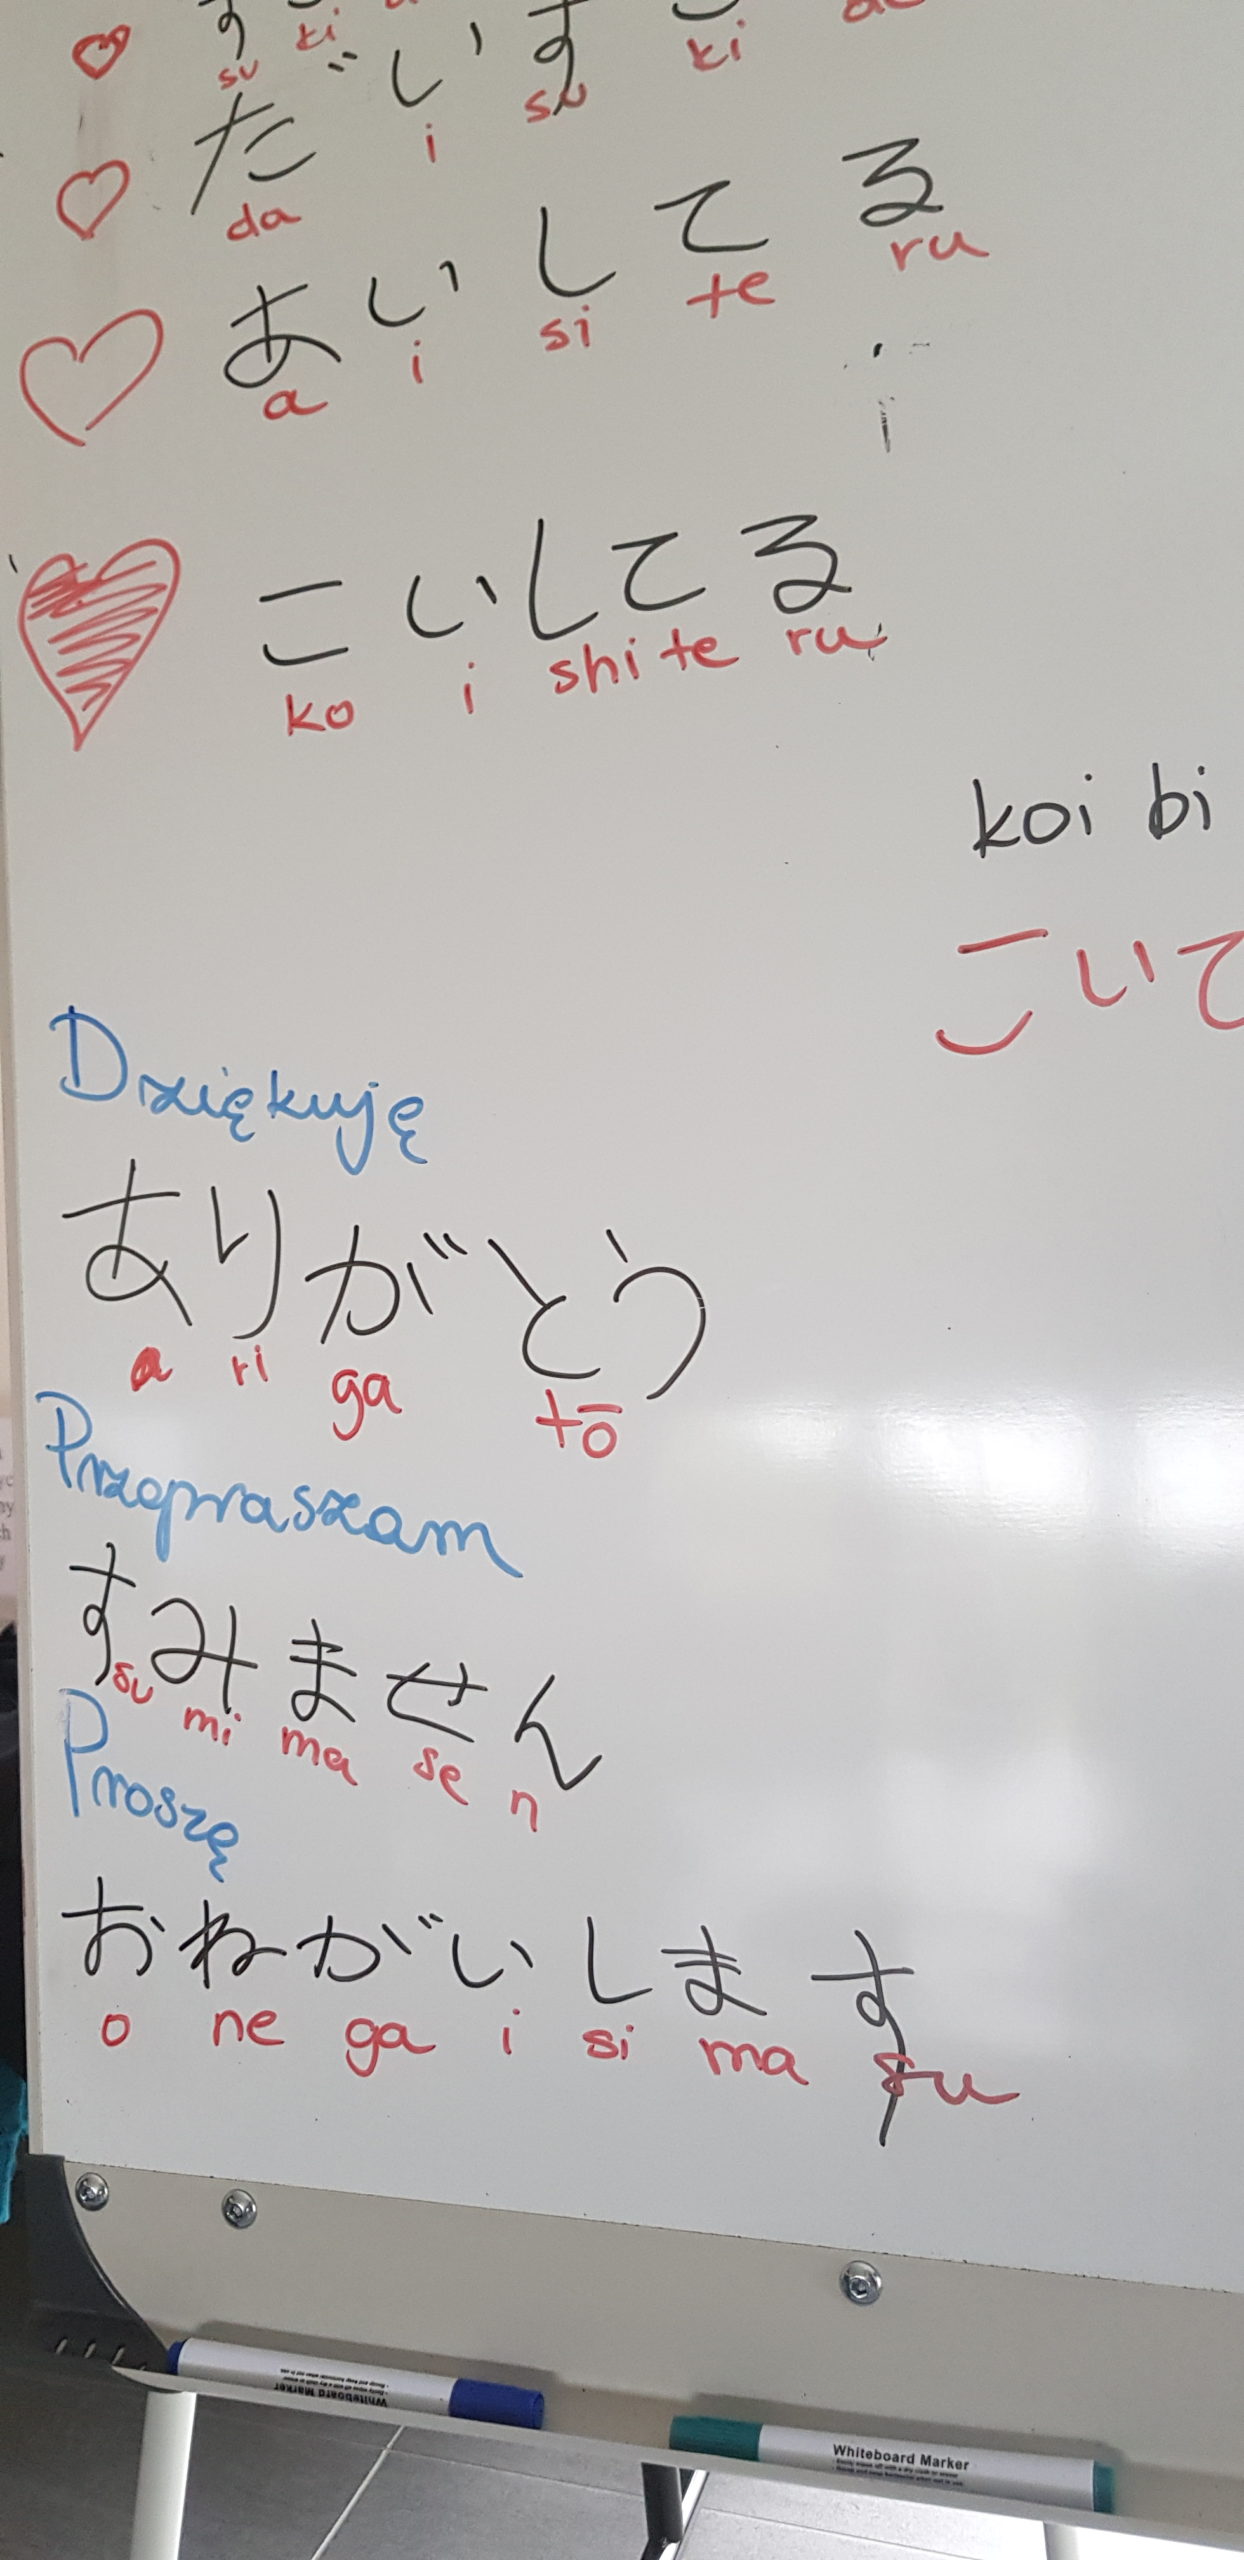 su ki
だいす
da i su ki
あいしてる
a i si te ru
こいしてる
ko i shi te ru
koi bi
こいて
Dziękuję
ありがとう
a ri ga tō
Przepraszam
すみません
su mi ma se n
Proszę
おねがいします
o ne ga i si ma su
Whiteboard Marker
Whiteboard Marker